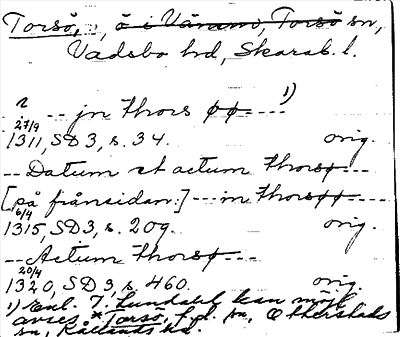 Torsö, ö i Vänern, Torsö sn,
Vadsbo hd, Skarab. l.
2 -- in thors øø --- 1)
27/9
1311, SD 3, s. 34. orig.
-- Datum et actum thorsø --
[på frånsidan:] --- in thorsøø ---
6/4
1315, SD 3, s. 209. orig.
-- Actum thorsø ---
20/4
1320, SD 3, s. 460. orig.
1) Enl. I. Lundahl kan möjl.
avses *Torsö, f.d. sn, Otterstads
sn, Kållands hd.